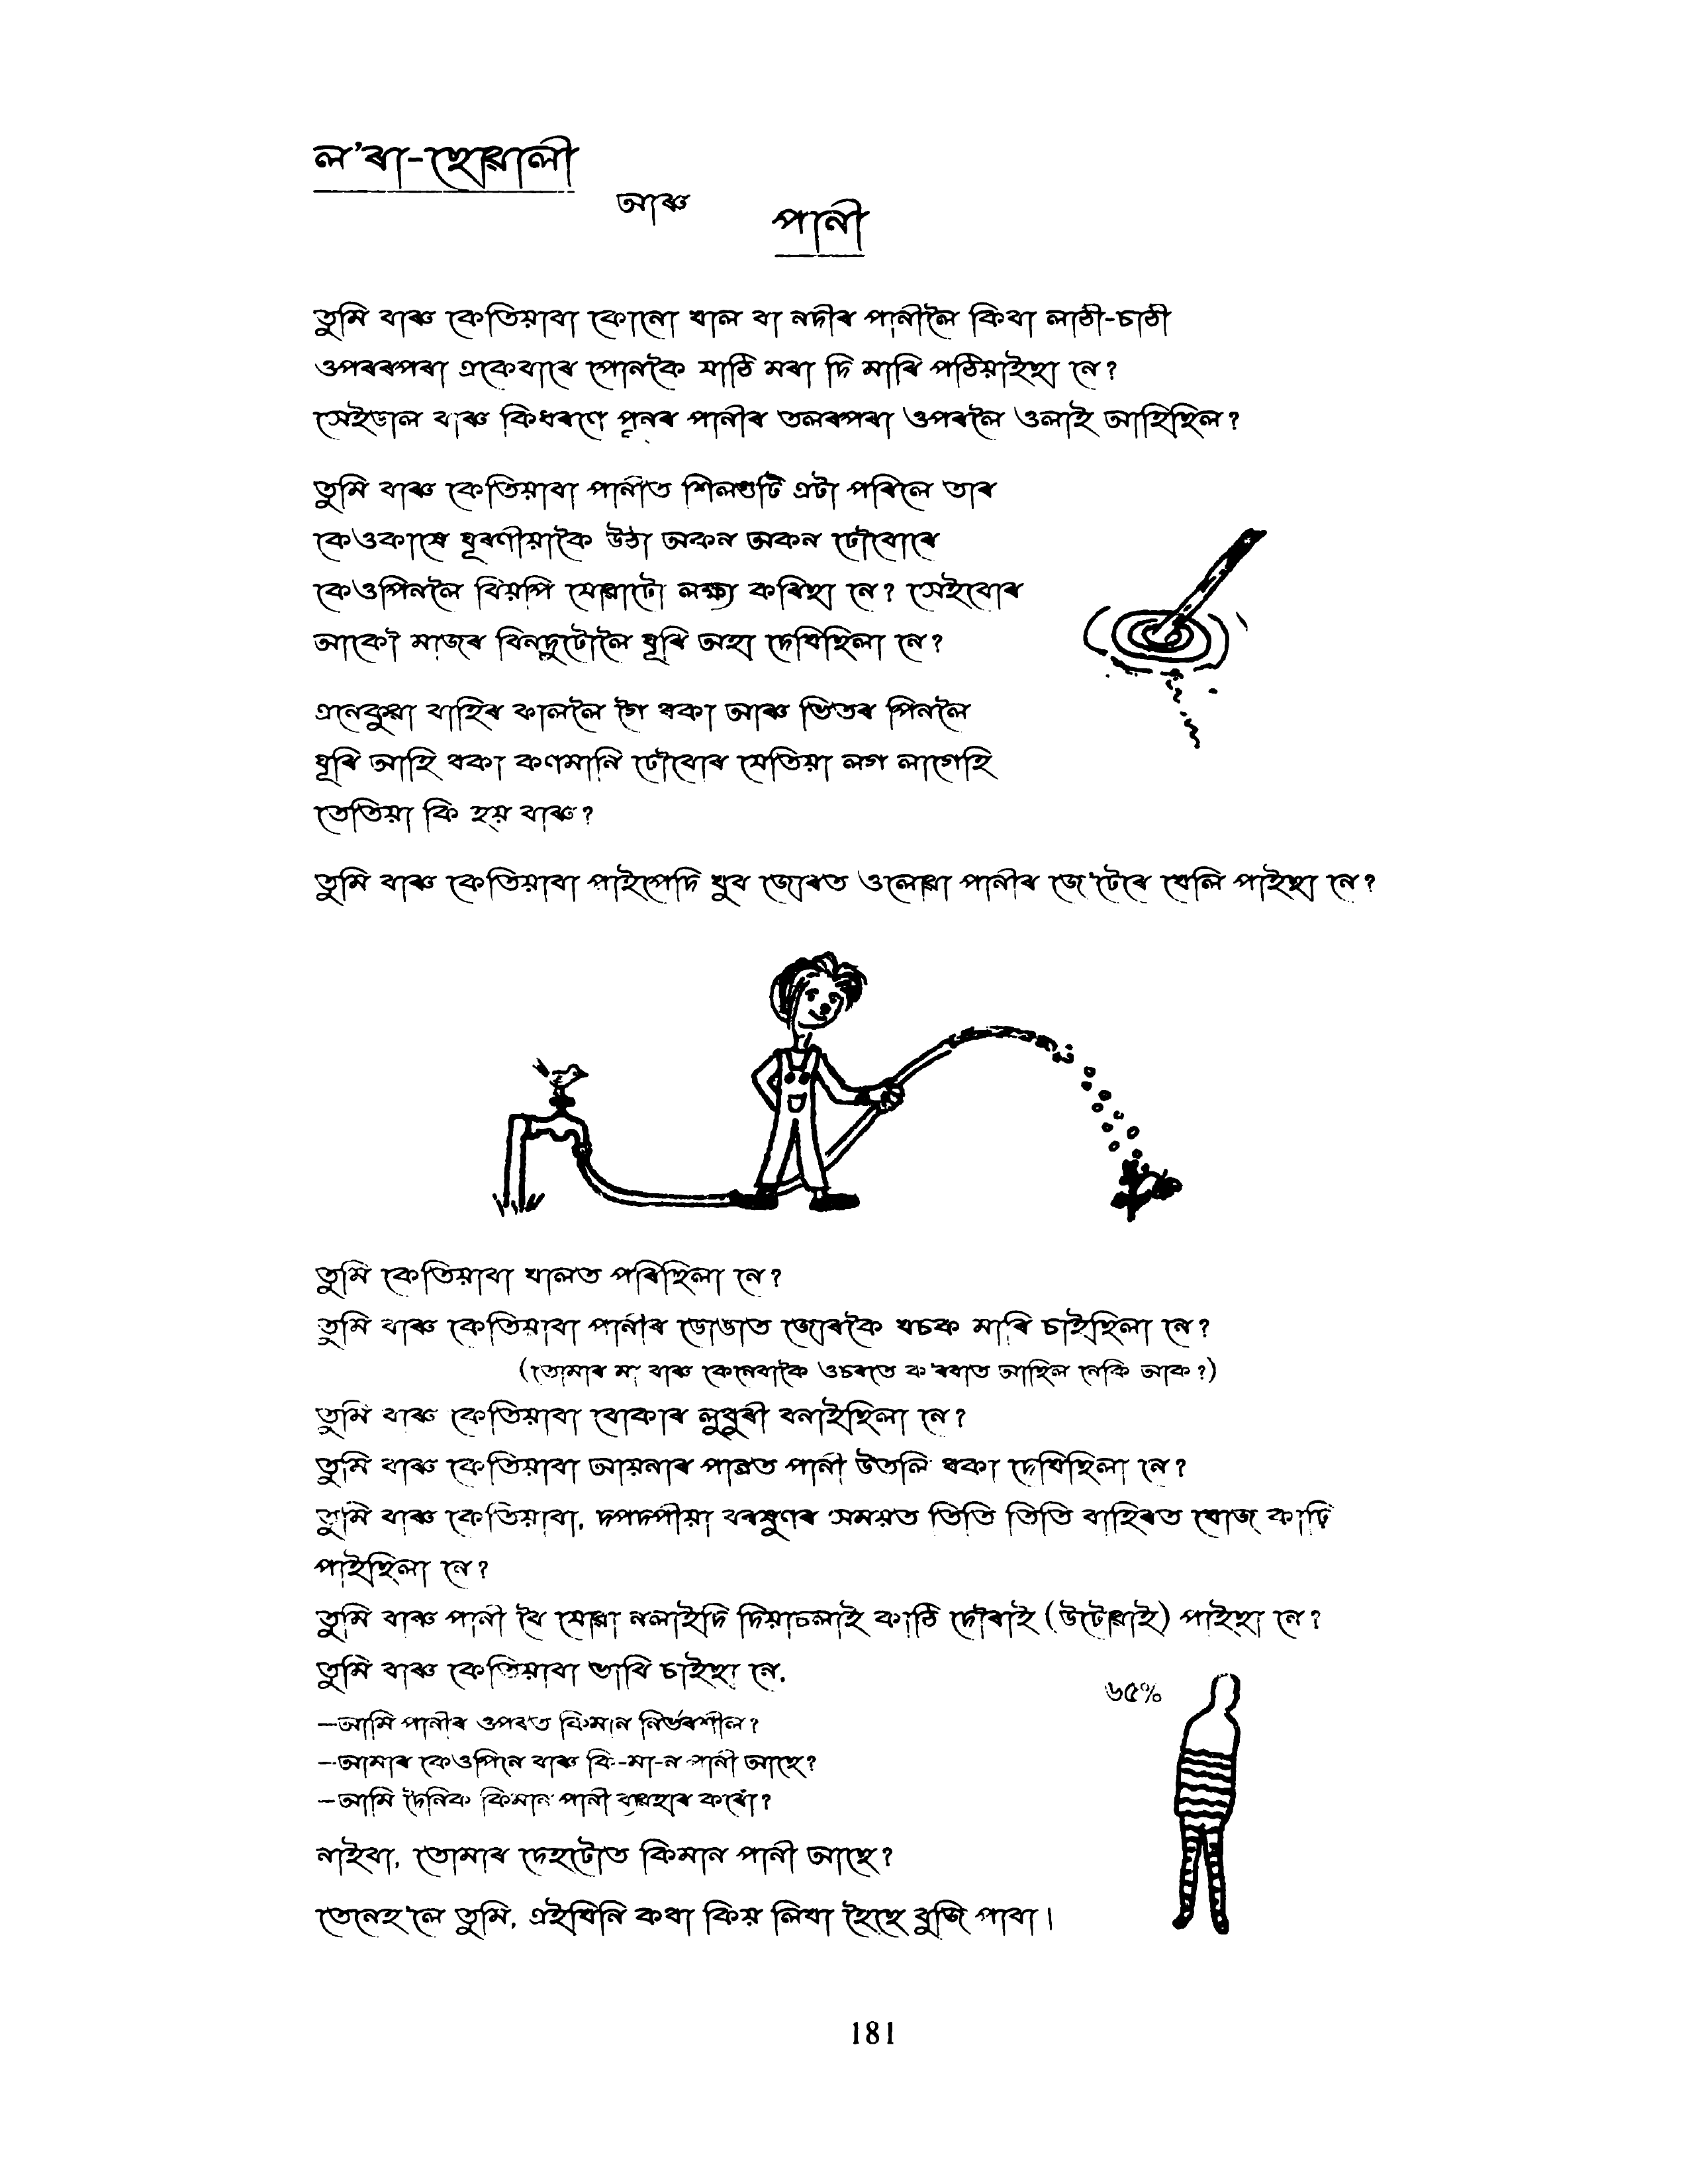 ল'ৰা-ছোৱালী
আৰু
পানী
তুমি বাৰু কেতিয়াবা কোনো খাল বা নদীৰ পানীলৈ কিবা লাঠী-চাঠী
ওপৰৰপৰা একেবাৰে পোনকৈ যাঠি মৰা দি মাৰি পঠিয়াইছা নে?
সেইডাল বাৰু কিধৰণে পুনৰ পানীৰ তলৰপৰা ওপৰলৈ ওলাই আহিছিল?
তুমি বাৰু কেতিয়াবা পানীত শিলগুটি এটা পৰিলে তাৰ
কেওকাষে ঘূৰণীয়াকৈ উঠা অকন অকন ঢৌবোৰে
কেওপিনলৈ বিয়পি যোৱাটো লক্ষ্য কৰিছা নে? সেইবোৰ
আকৌ মাজৰ বিন্দুটোলৈ ঘূৰি অহা দেখিছিলা নে?
এনেকুৱা বাহিৰ কাললৈ গৈ থকা আৰু ভিতৰ পিনলৈ
ঘূৰি আহি থকা কণমানি ঢৌবোৰ যেতিয়া লগ লাগেহি
তেতিয়া কি হয় বাৰু?
তুমি বাৰু কেতিয়াবা পাইপেদি খুব জোৰত ওলোৱা পানীৰ জে'টেৰে খেলি পাইছা নে?
তুমি কেতিয়াবা খালত পৰিছিলা নে?
তুমি বাৰু কেতিয়াবা পানীৰ ডোঙাত জোৰকৈ খচক মাৰি চাইছিলা নে?
(তোমাৰ মা বাৰু কেনেবাকৈ ওচৰতে ক'ৰবাত আছিল নেকি আক?)
তুমি বাৰু কেতিয়াবা বোকাৰ লুথুৰী বনাইছিলা নে?
তুমি বাৰু কেতিয়াবা আয়নাৰ পাত্ৰত পানী উতলি থকা দেখিছিলা নে?
তুমি বাৰু কেতিয়াবা, দপদপীয়া বৰষুণৰ সময়ত তিতি তিতি বাহিৰত খোজ কাঢ়ি
পাইছিলা নে?
তুমি বাৰু পানী বৈ যোৱা নলাইদি দিয়াচলাই কাঠি দৌৰাই (উটোৱাই) পাইছা নে?
তুমি বাৰু কেতিয়াবা ভাবি চাইছা নে,
—আমি পানীৰ ওপৰত কিমান নিৰ্ভৰশীল?
—আমাৰ কেওপিনে বাৰু কি-মা-ন পানী আছে?
—আমি দৈনিক কিমান পানী ব্যৱহাৰ কৰোঁ?
নাইবা, তোমাৰ দেহটোত কিমান পানী আছে?
তেনেহ'লে তুমি, এইখিনি কথা কিয় লিখা হৈছে বুজি পাবা।
৬৫%
181